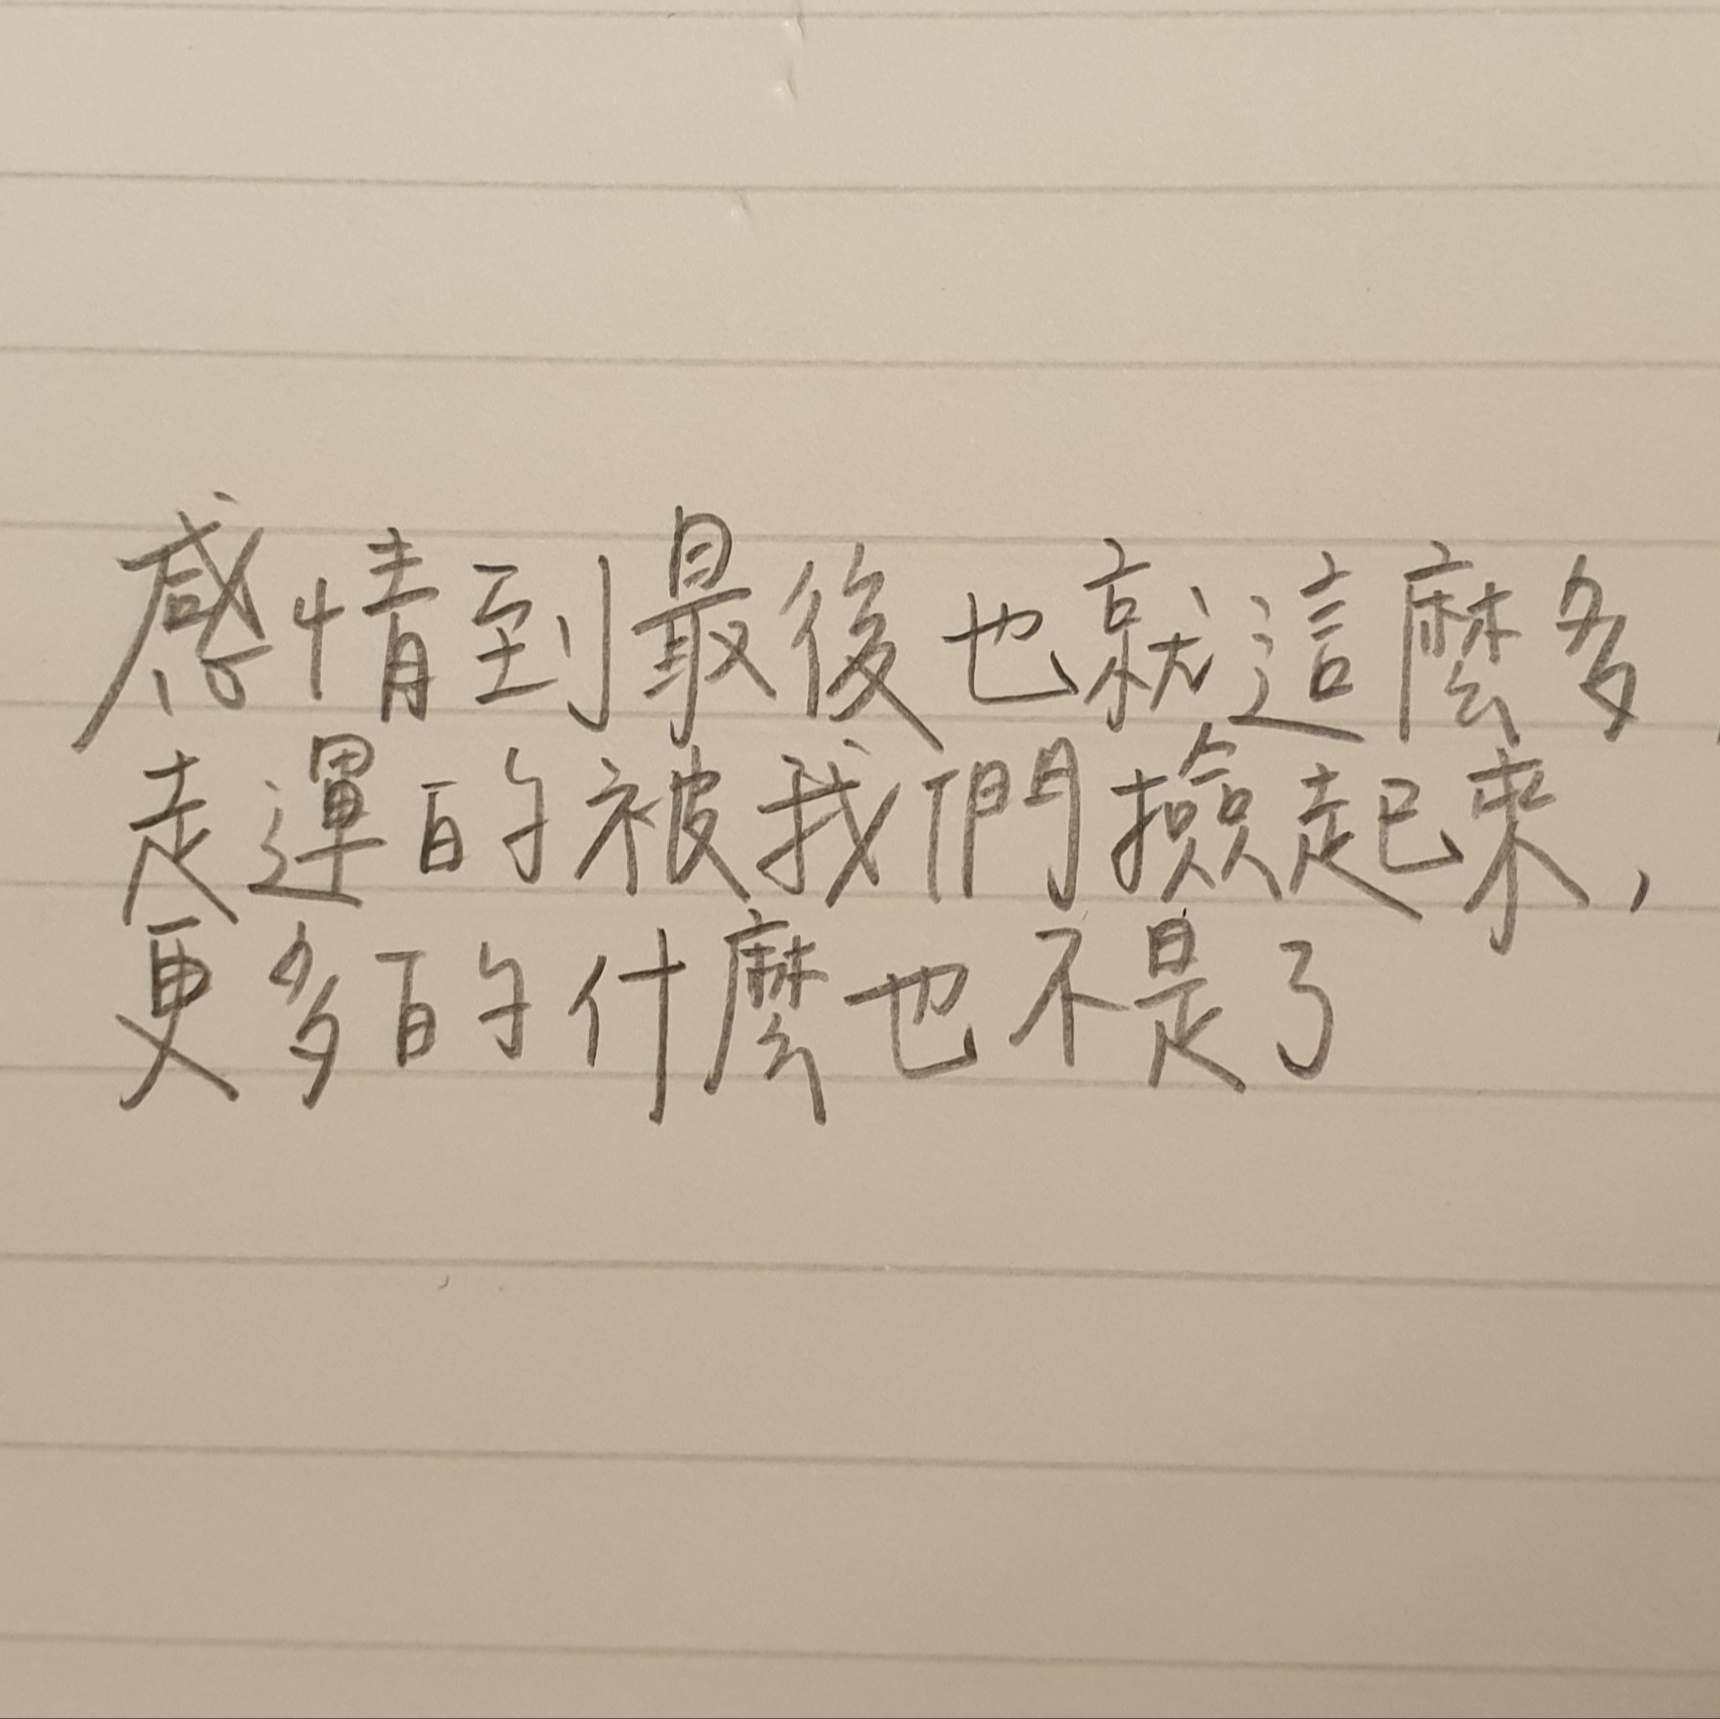 感情到最後也就這麼多,
走運的被我們撿起來,
更多的什麼也不是了